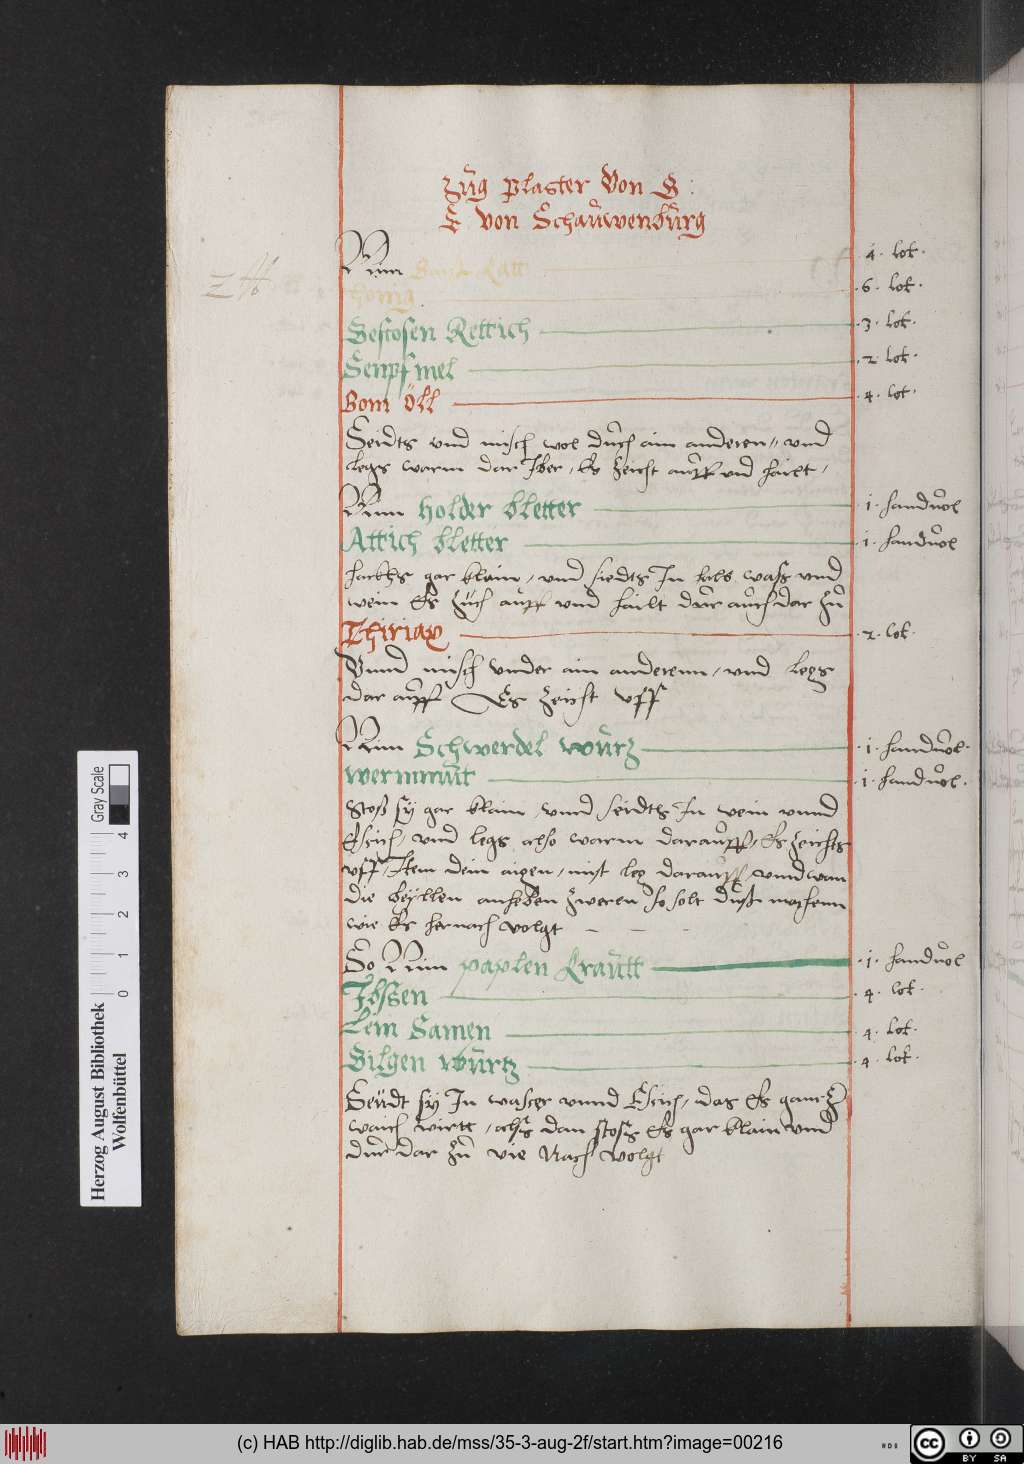 Züg plaster Von G :
E von Schaůwenbůrg
Nim 4 · lot ·
honig · 6 · lot ·
Gestosen Rettich · 3 · lot ·
Senpf mel · 2 · lot ·
Bom öll · 4 · lot ·
Seidts vnd misch wol dürch ain anderen / vnd
legs warm dar Iber / Es Zeicht aůff vnd hailt /
Nim holder bletter · 1 · handuol
Attich bletter · 1 · handuol
hackhs gar klain / vnd siedts In halb waß vnd
wein Es Züch aůff vnd hailt důr aůch dar Zů
Thiriax · 2 · lot ·
Vnnd misch vnder ain anderenn / vnd legs
dar aůff Es Zeicht vff
Nim Schwerdel würtz · 1 · handuol ·
wermmůt · 1 · handuol ·
Stoß sy gar klain vnnd seidts In wein vnnd
Esich / vnd legs also warm daraůff / Es Zeichts
vff / Item dein aigen / mist leg daraůff vnnd wan
die beÿllen anheben Zweren so solt důß machenn
wie Es hernach volgt
So Nim paplen kraůtt · 1 · handuol
Ibssen · 4 · lot ·
Lein Samen · 4 · lot ·
Gilgen würtz · 4 · lot ·
Seüdt sy In wasser vnnd Esich / das Es gantz
waich wirtt / also dan stoß Es gar klain vnd
důr dar Zů wie Nach volgt
Herzog August Bibliothek
Wolfenbüttel
0 1 2 3 4
Gray Scale
(c) HAB http://diglib.hab.de/mss/35-3-aug-2f/start.htm?image=00216
HAB
cc
BY SA